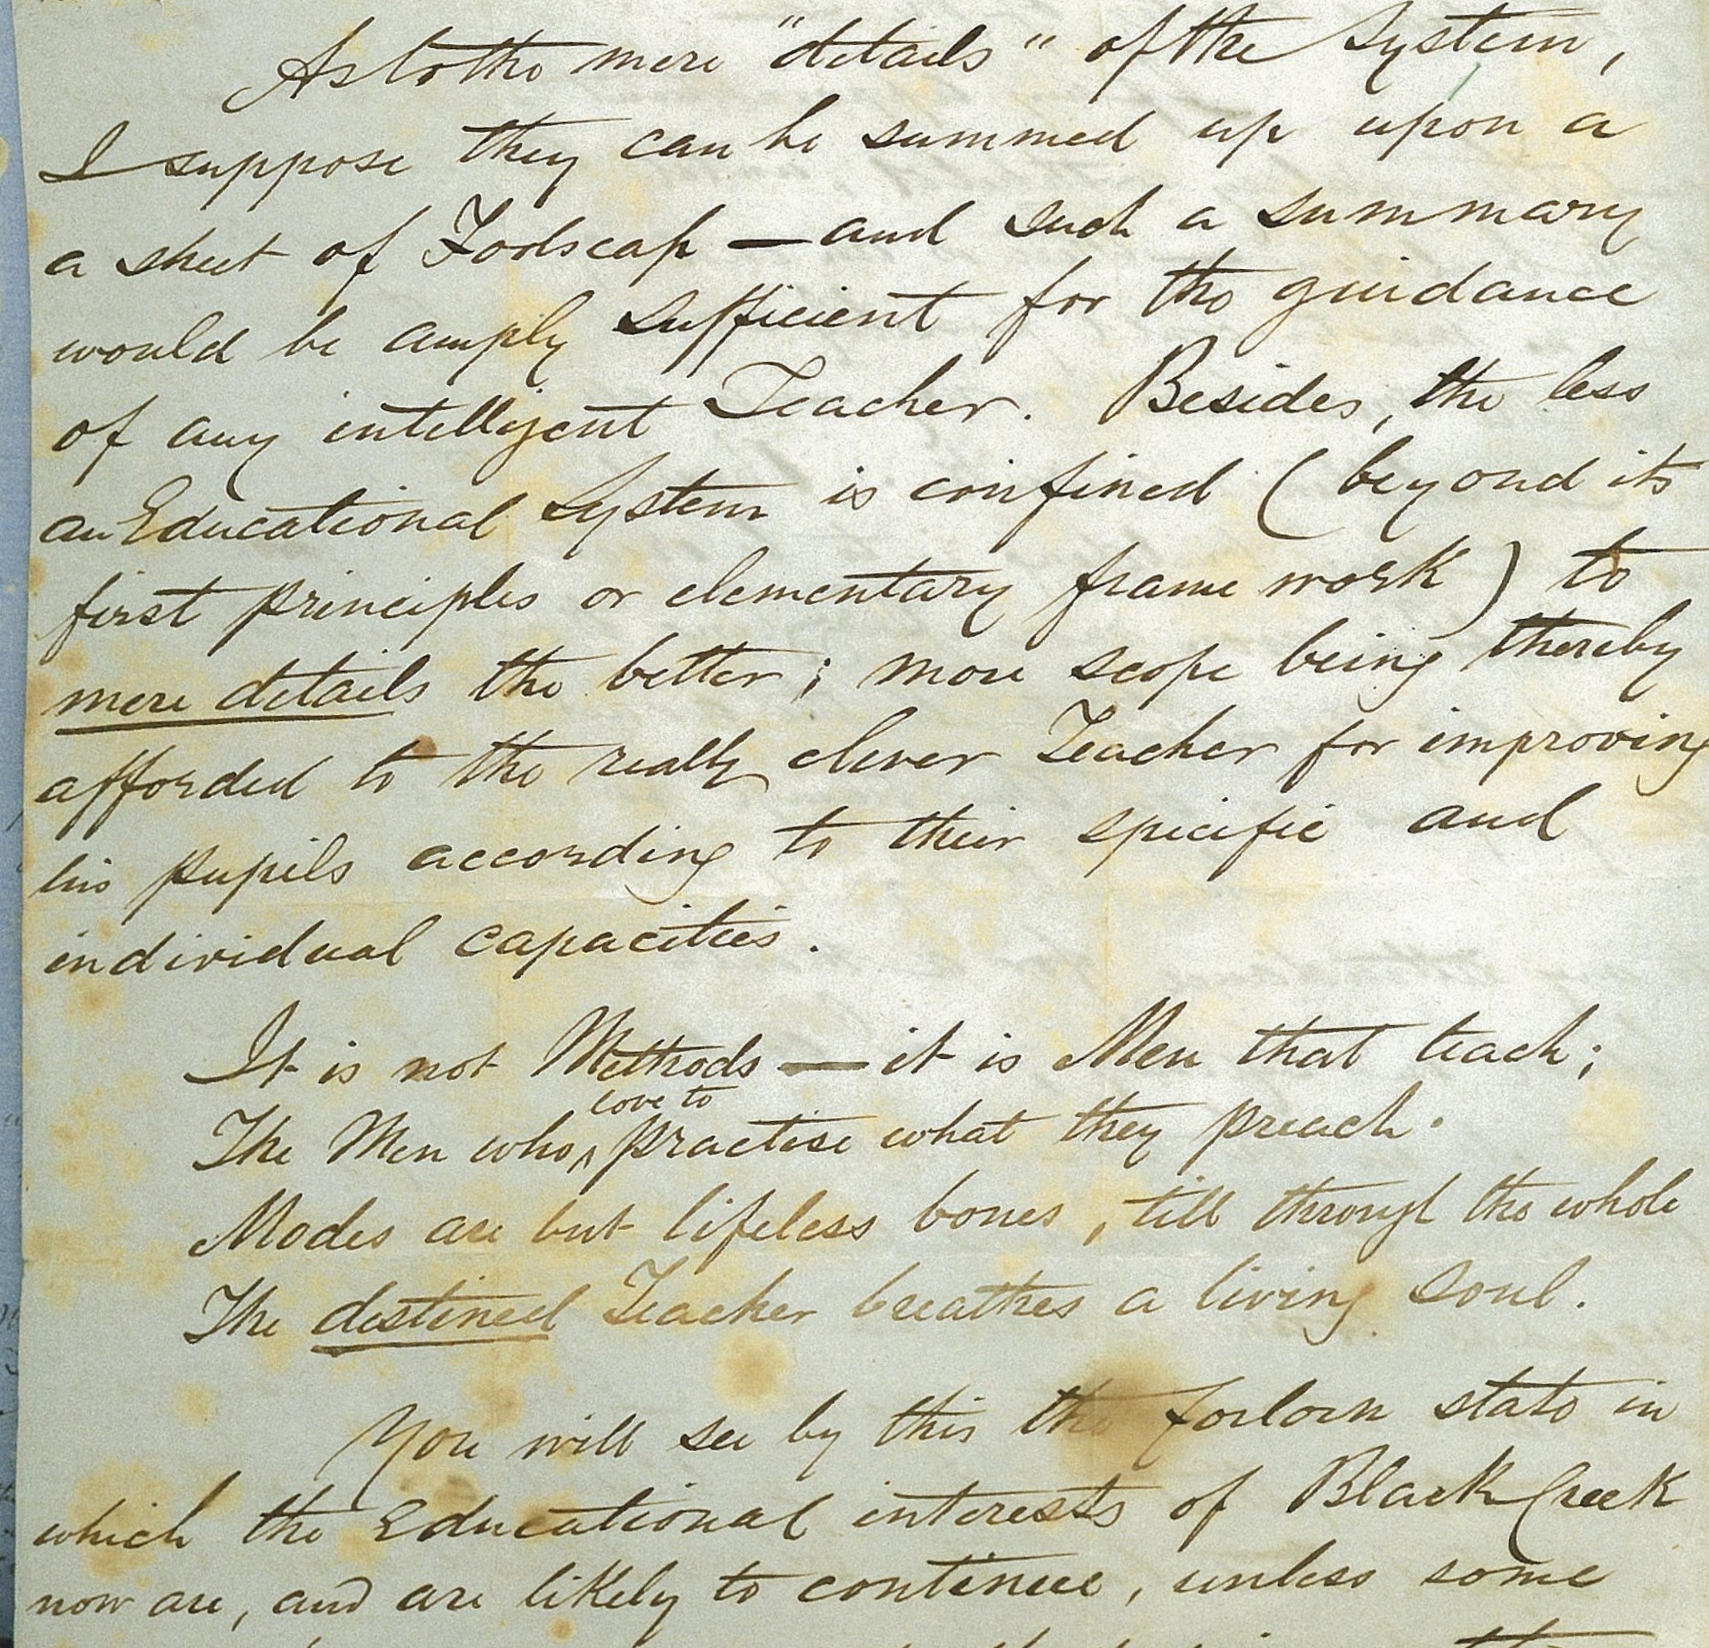 As to the mere "details" of the System,
I suppose they can be summed up upon a
a sheet of Foolscap — and such a summary
would be amply sufficient for the guidance
of any intelligent Teacher. Besides, the less
an Educational System is confined (beyond its
first principles or elementary frame work) to
mere details the better; more scope being thereby
afforded to the really clever Teacher for improving
his pupils according to their specific and
individual capacities.
It is not Methods — it is Men that teach;
love to
The Men who ^ practise what they preach.
Modes are but lifeless bones, till through the whole
The destined Teacher breathes a living soul.
You will see by this the forlorn state in
which the Educational interests of Black Creek
now are, and are likely to continue, unless some